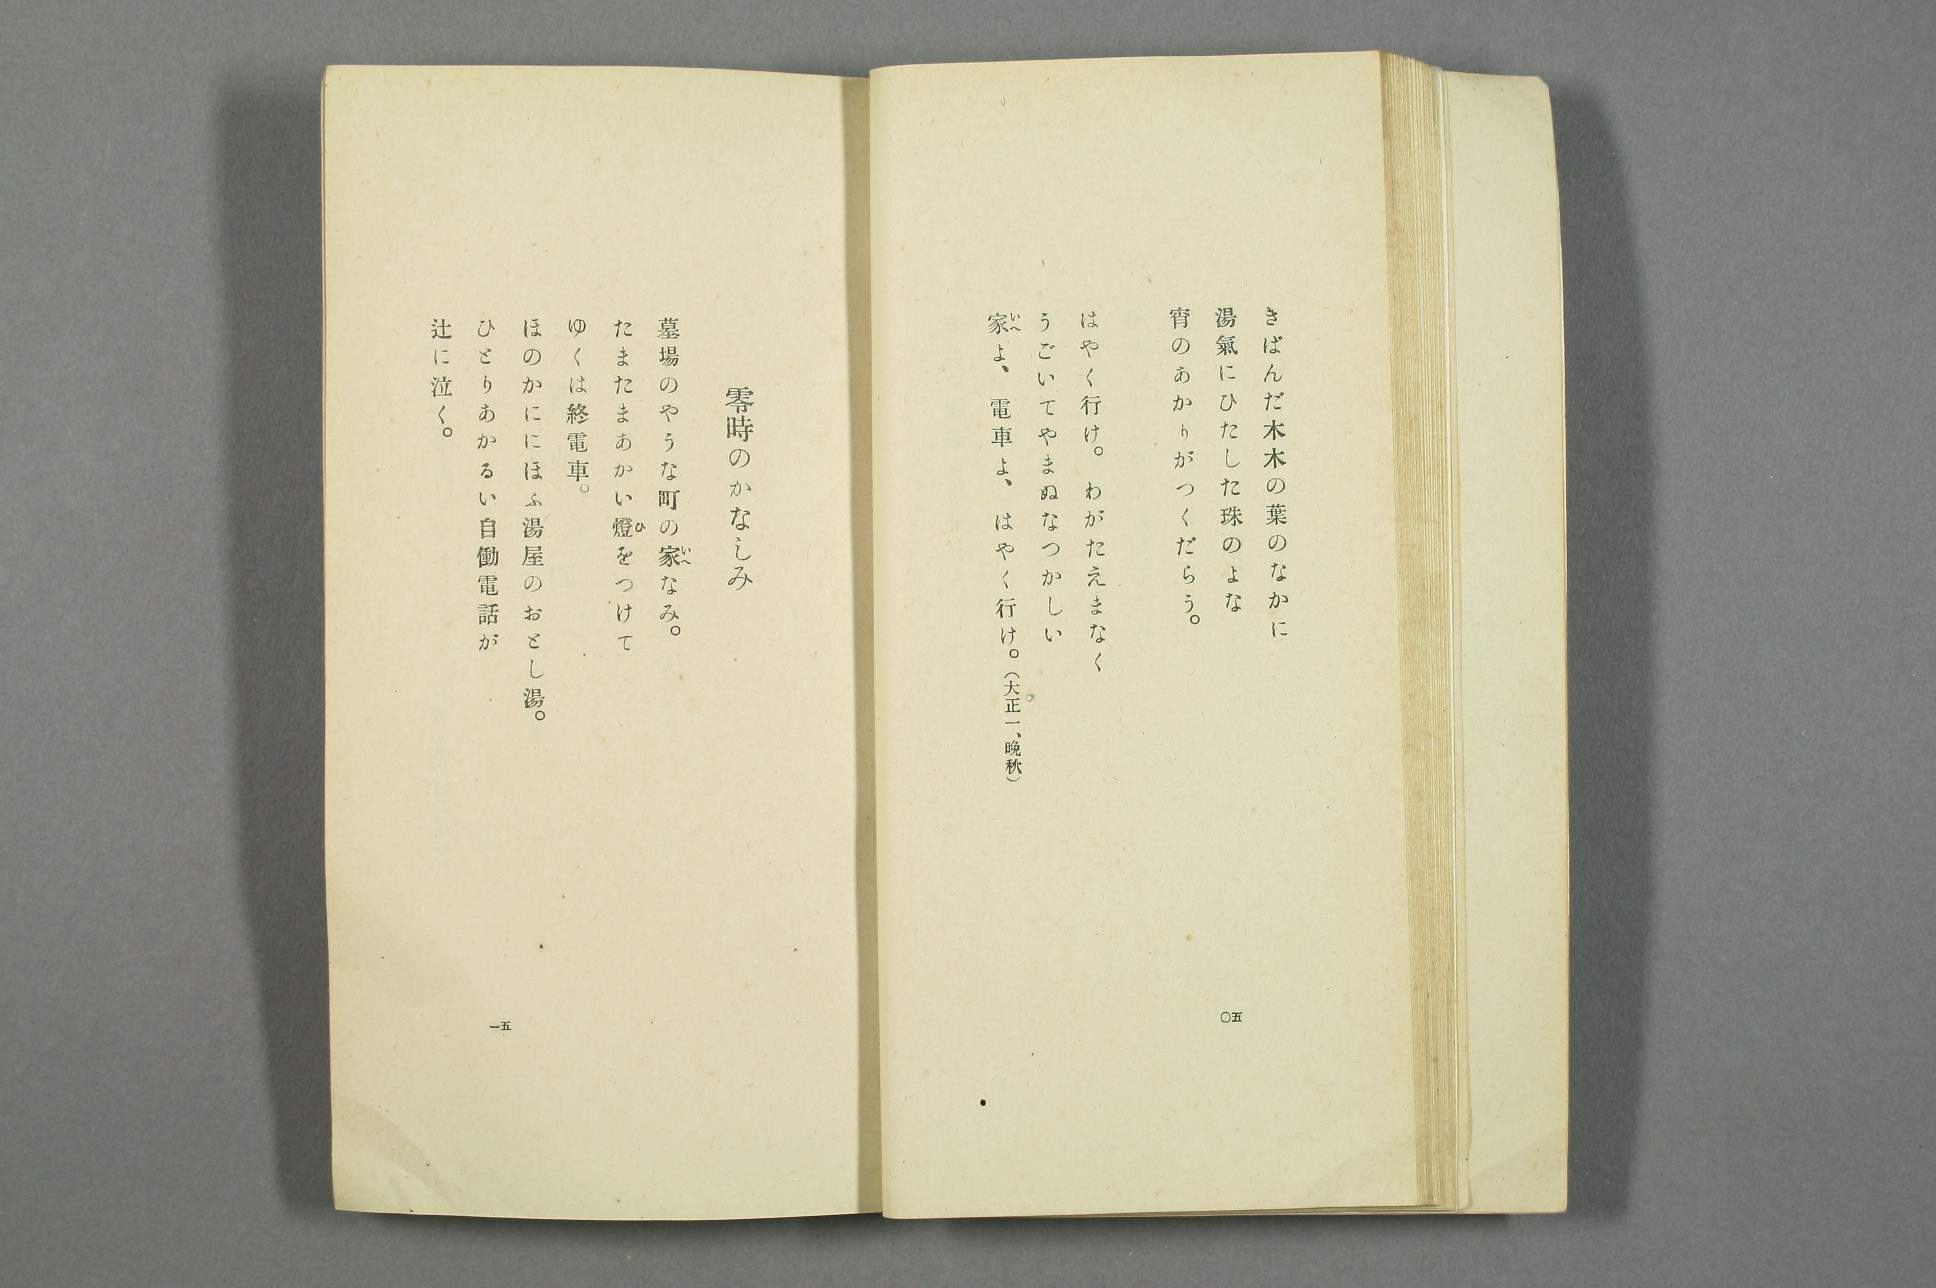 きばんだ木木の葉のなかに
湯氣にひたした珠のよな
宵のあかりがつくだらう。
はやく行け。わがたえまなく
うごいてやまぬなつかしい
家よ、電車よ、はやく行け。（大正一、晩秋）
いへ
五〇
零時のかなしみ
墓場のやうな町の家なみ。
いへ
たまたまあかい燈をつけて
ひ
ゆくは終電車。
ほのかににほふ湯屋のおとし湯。
ひとりあかるい自働電話が
辻に泣く。
五一